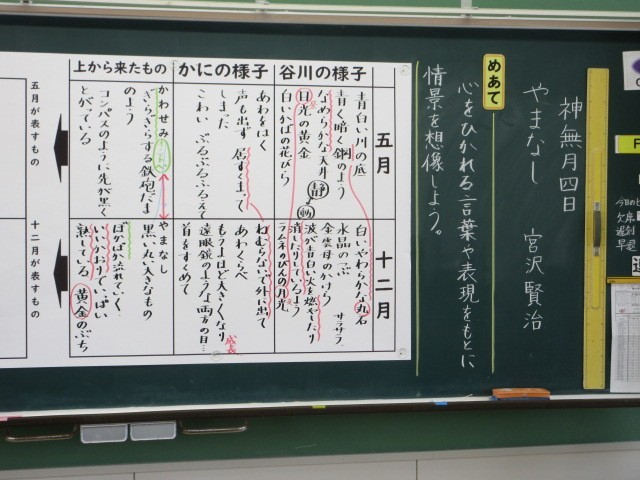 神無月四日
やまなし 宮沢賢治
めあて
心をひかれる言葉や表現をもとに
情景を想像しよう。
谷川の様子
かにの様子
上から来たもの
五月
青白い川の底
青く暗く鋼のよう
なめらかな天井
日光の黄金
白いかばの花びら
静
動
あわをはく
声も出ず 居すくまって
しまった
こわい ぶるぶるふるえて
かわせみ
ぎらぎらする鉄砲だま
のよう
コンパスのように先が黒く
とがている
五月が表すもの
十二月
白いやわらかな丸石
水晶のつぶ
金雲母のかけら
波が青白い火を燃やしたり
消したりしてるよう
ラムネのびんの月光
ねむらないで外に出て
あわくらべ
もうよほど大きくなり
遠眼鏡のような両方の目…
首をすくめて
成長
やまなし
黒い丸い大きなもの
ぼかぼか流れていく
いいにおいでいっぱい
熟している 黄金のぶち
十二月が表すもの